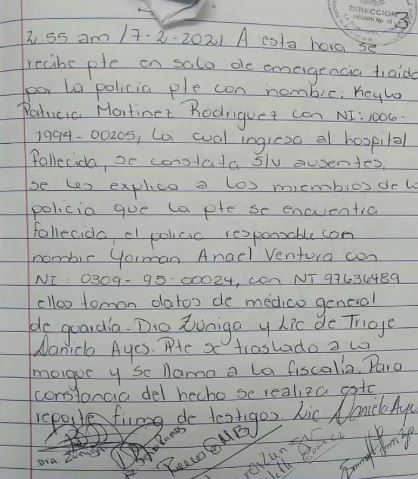 DIRECCION
REGION No. 10
3
2:55 am /7-2-2021 A esta hora se
recibe pte en sala de emergencia traida
por la policia pte con nombre: Keyla
Patricia Martinez Rodriguez con NI: 1006-
1994-00205, La cual ingresa al hospital
fallecida, se constata S/V ausentes.
se les explica a los miembros de la
policia que la pte se encuentra
fallecida, el policia responsable con
nombre Yorman Anael Ventura con
NI: 0309-95-00024, con NT 97636489
ellos toman datos de médico general
de guardia. Dra Zúniga y Lic de Triaje
Daniela Ayes. Pte se traslada a la
morgue y se llama a la fiscalía. Para
constancia del hecho se realiza este
reporte, firma de testigos. Lic Daniela Ayes
Dra. Zúniga